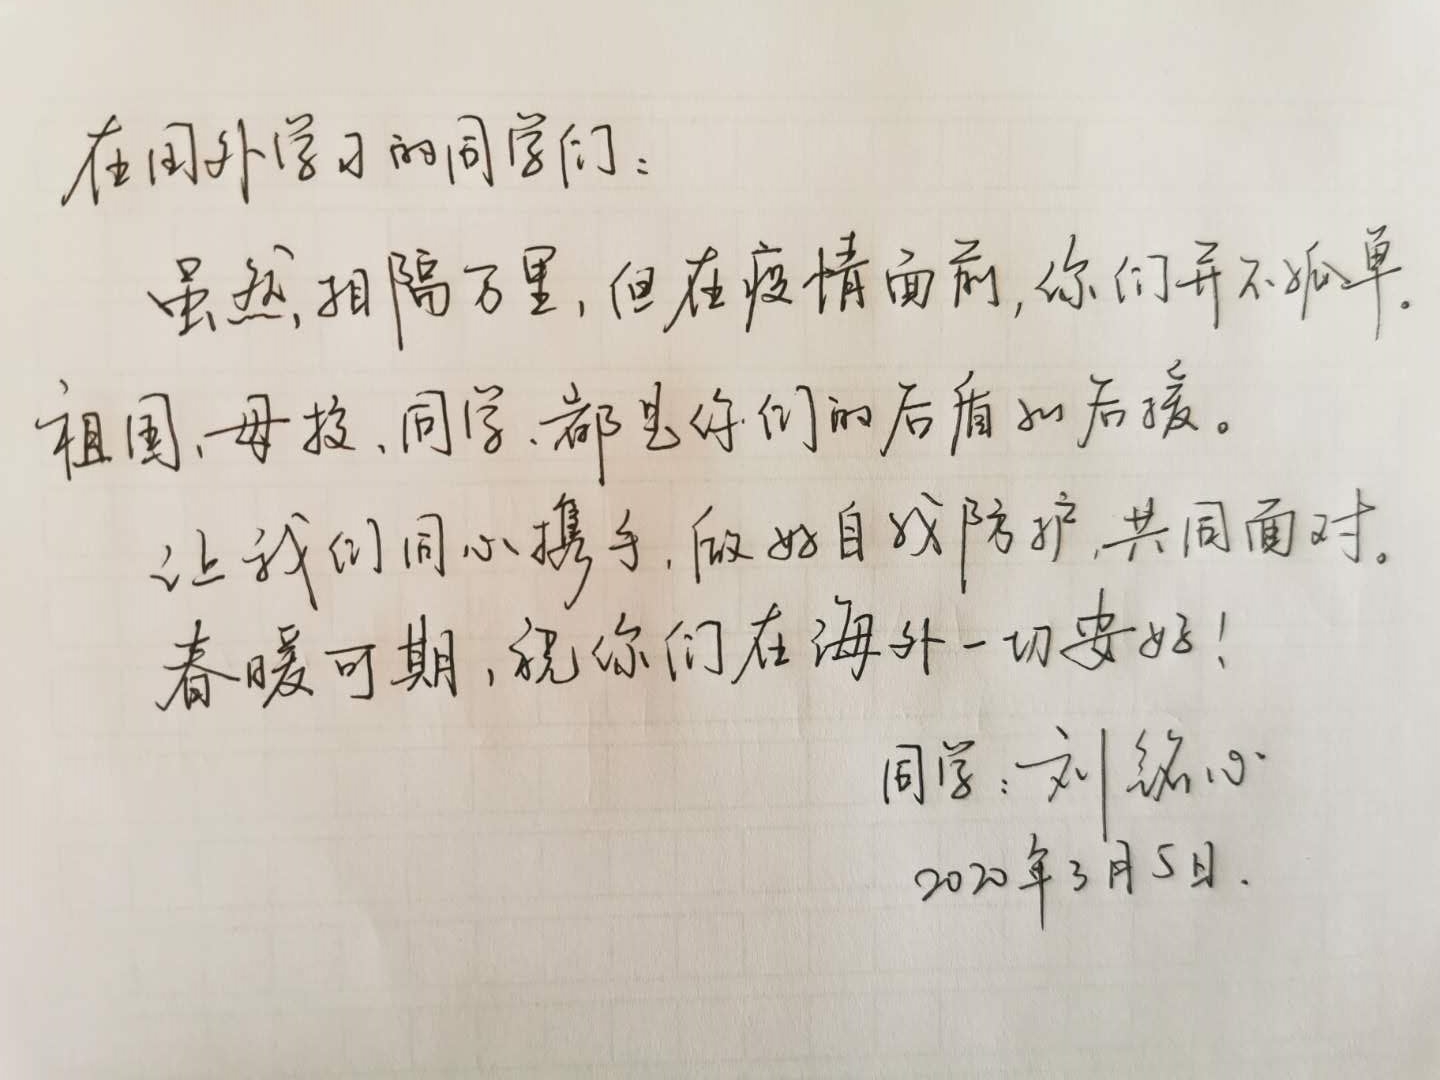 在国外学习的同学们：
虽然，相隔万里，但在疫情面前，你们并不孤单。
祖国、母校、同学、都是你们的后盾和后援。
让我们同心携手，做好自我防护，共同面对。
春暖可期，祝你们在海外一切安好！
同学：刘铭心
2020年3月5日.